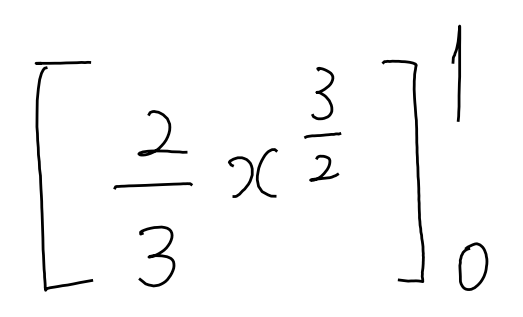 \left[ \frac{2}{3} x^{\frac{3}{2}} \right]_0^1